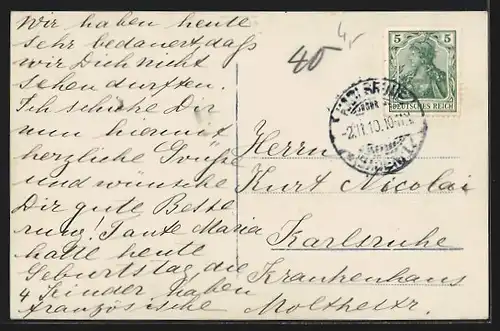 Wir haben heute
sehr bedauert, daß
wir Dich nicht
sehen durften.
Ich schicke Dir
nun hiermit
herzliche Grüße
und wünsche
Dir gute Besse
rung! Tante Maria
hatte heute
Geburtstag die
4 Kinder haben
französische
40
4,-
5 5
DEUTSCHES REICH
KARLSRUHE
-2.11.10.10-
Herrn
Kurt Nicolai
Karlsruhe
Krankenhaus
Moltkestr.